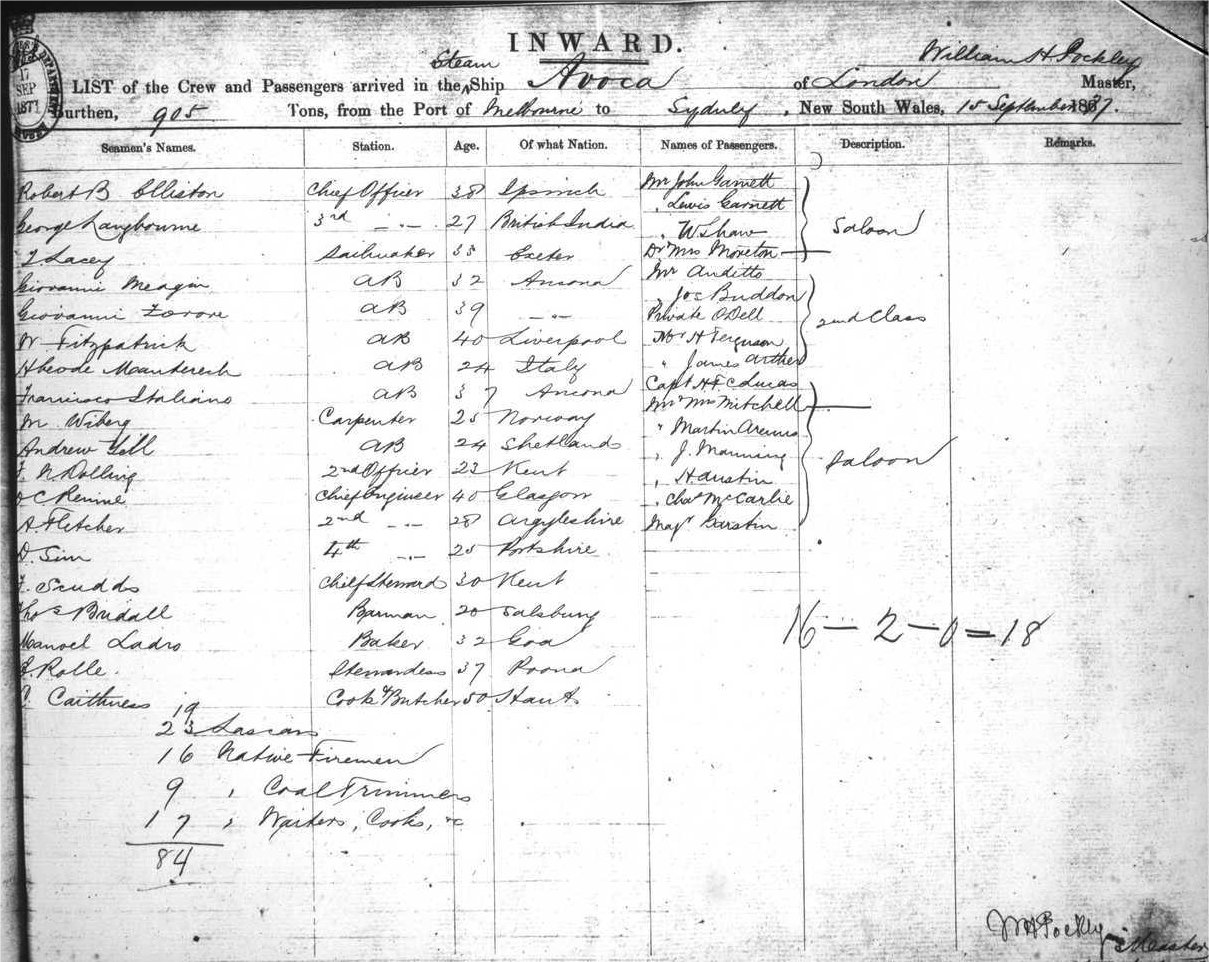 INWARD.
William H Pockley
LIST of the Crew and Passengers arrived in the Steam Ship Avoca of London Master,
Burthen, 905 Tons, from the Port of Melbourne to Sydney, New South Wales, 15 September 1877.
17
SEP
1877
Seamen's Names. Station. Age. Of what Nation. Names of Passengers. Description. Remarks.
Robert B Elliston Chief Officer 38 Ipswich Mr John Garnett
" Lewis Garnett
George Langbourne 3rd " 27 British India " W. Shaw Saloon
T Lacey Sailmaker 35 Exeter Dr & Mrs Moreton
Giovanni Meagin AB 32 Ancona Mr Auditto
" Jos Buddon
Giovanni AB 39 " Private O'Dell 2nd Class
W Fitzpatrick AB 40 Liverpool Mr H Ferguson
AB 24 Italy " James Arther
Francisco Italiano AB 37 Ancona Capt H F C Lucas
M Wiberg Carpenter 25 Norway Mr & Mrs Mitchell
Andrew Yell AB 24 Shetlands " Martin
F. N Dolling 2nd Officer 23 Kent " J. Manning Saloon
J C Rennie Chief Engineer 40 Glasgow " H Austin
A. Fletcher 2nd " 28 Argyleshire " Chas McCarlie
D. Sim 4th " 25 Major Garstin
F. Scudds Chief Steward 30 Kent
Thos Bridall Barman 20 Salsburg
Manoel Ladro Baker 32 Goa 16 — 2 — 0 = 18
Rolle. Stewardess 37 Poona
C. Caithness Cook & Butcher 50 Hants
19
23 Lascars
16 Native Firemen
9 " Coal Trimmers
17 " Waiters, Cooks, &c
84
W H Pockley
Master